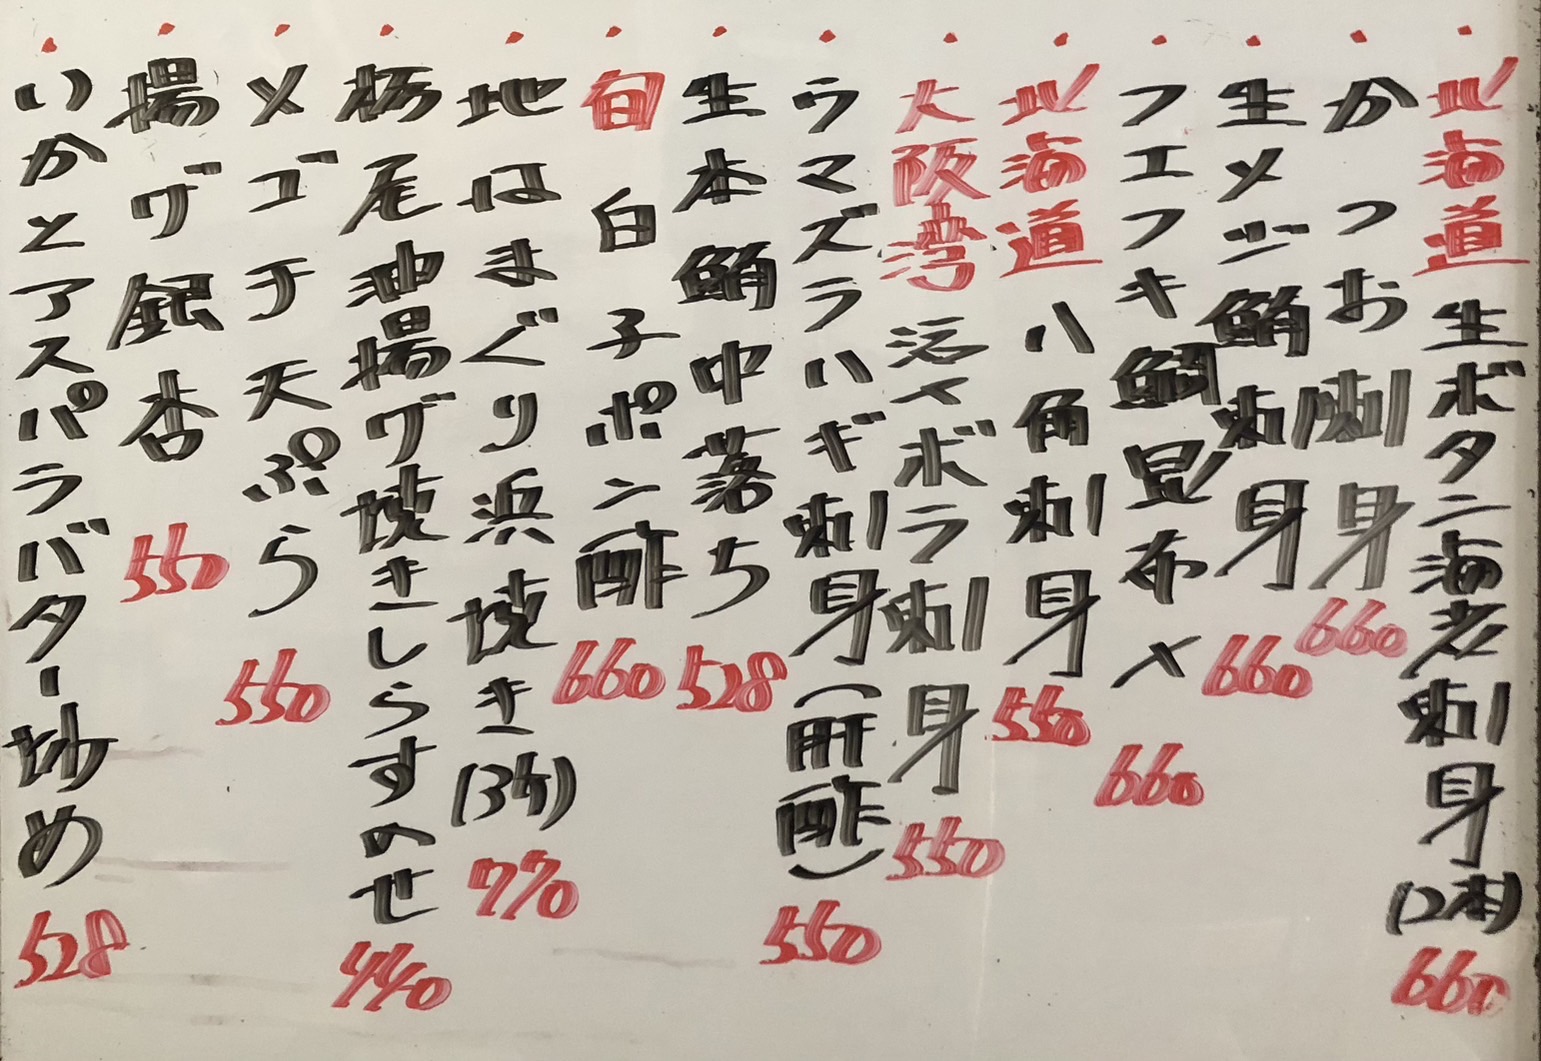 北海道生ボタン海老刺身(2本) 660
かつお刺身 660
生メジ鮪刺身 660
フエフキ鯛昆布〆 660
北海道八角刺身 550
大阪湾活〆ボラ刺身 550
ウマズラハギ刺身(肝酢) 550
生本鮪中落ち 528
旬白子ポン酢 660
地はまぐり浜焼き(3ケ) 770
栃尾油揚ゲ焼きしらすのせ 440
メゴチ天ぷら 550
揚ゲ銀杏 550
いかとアスパラバター炒め 528